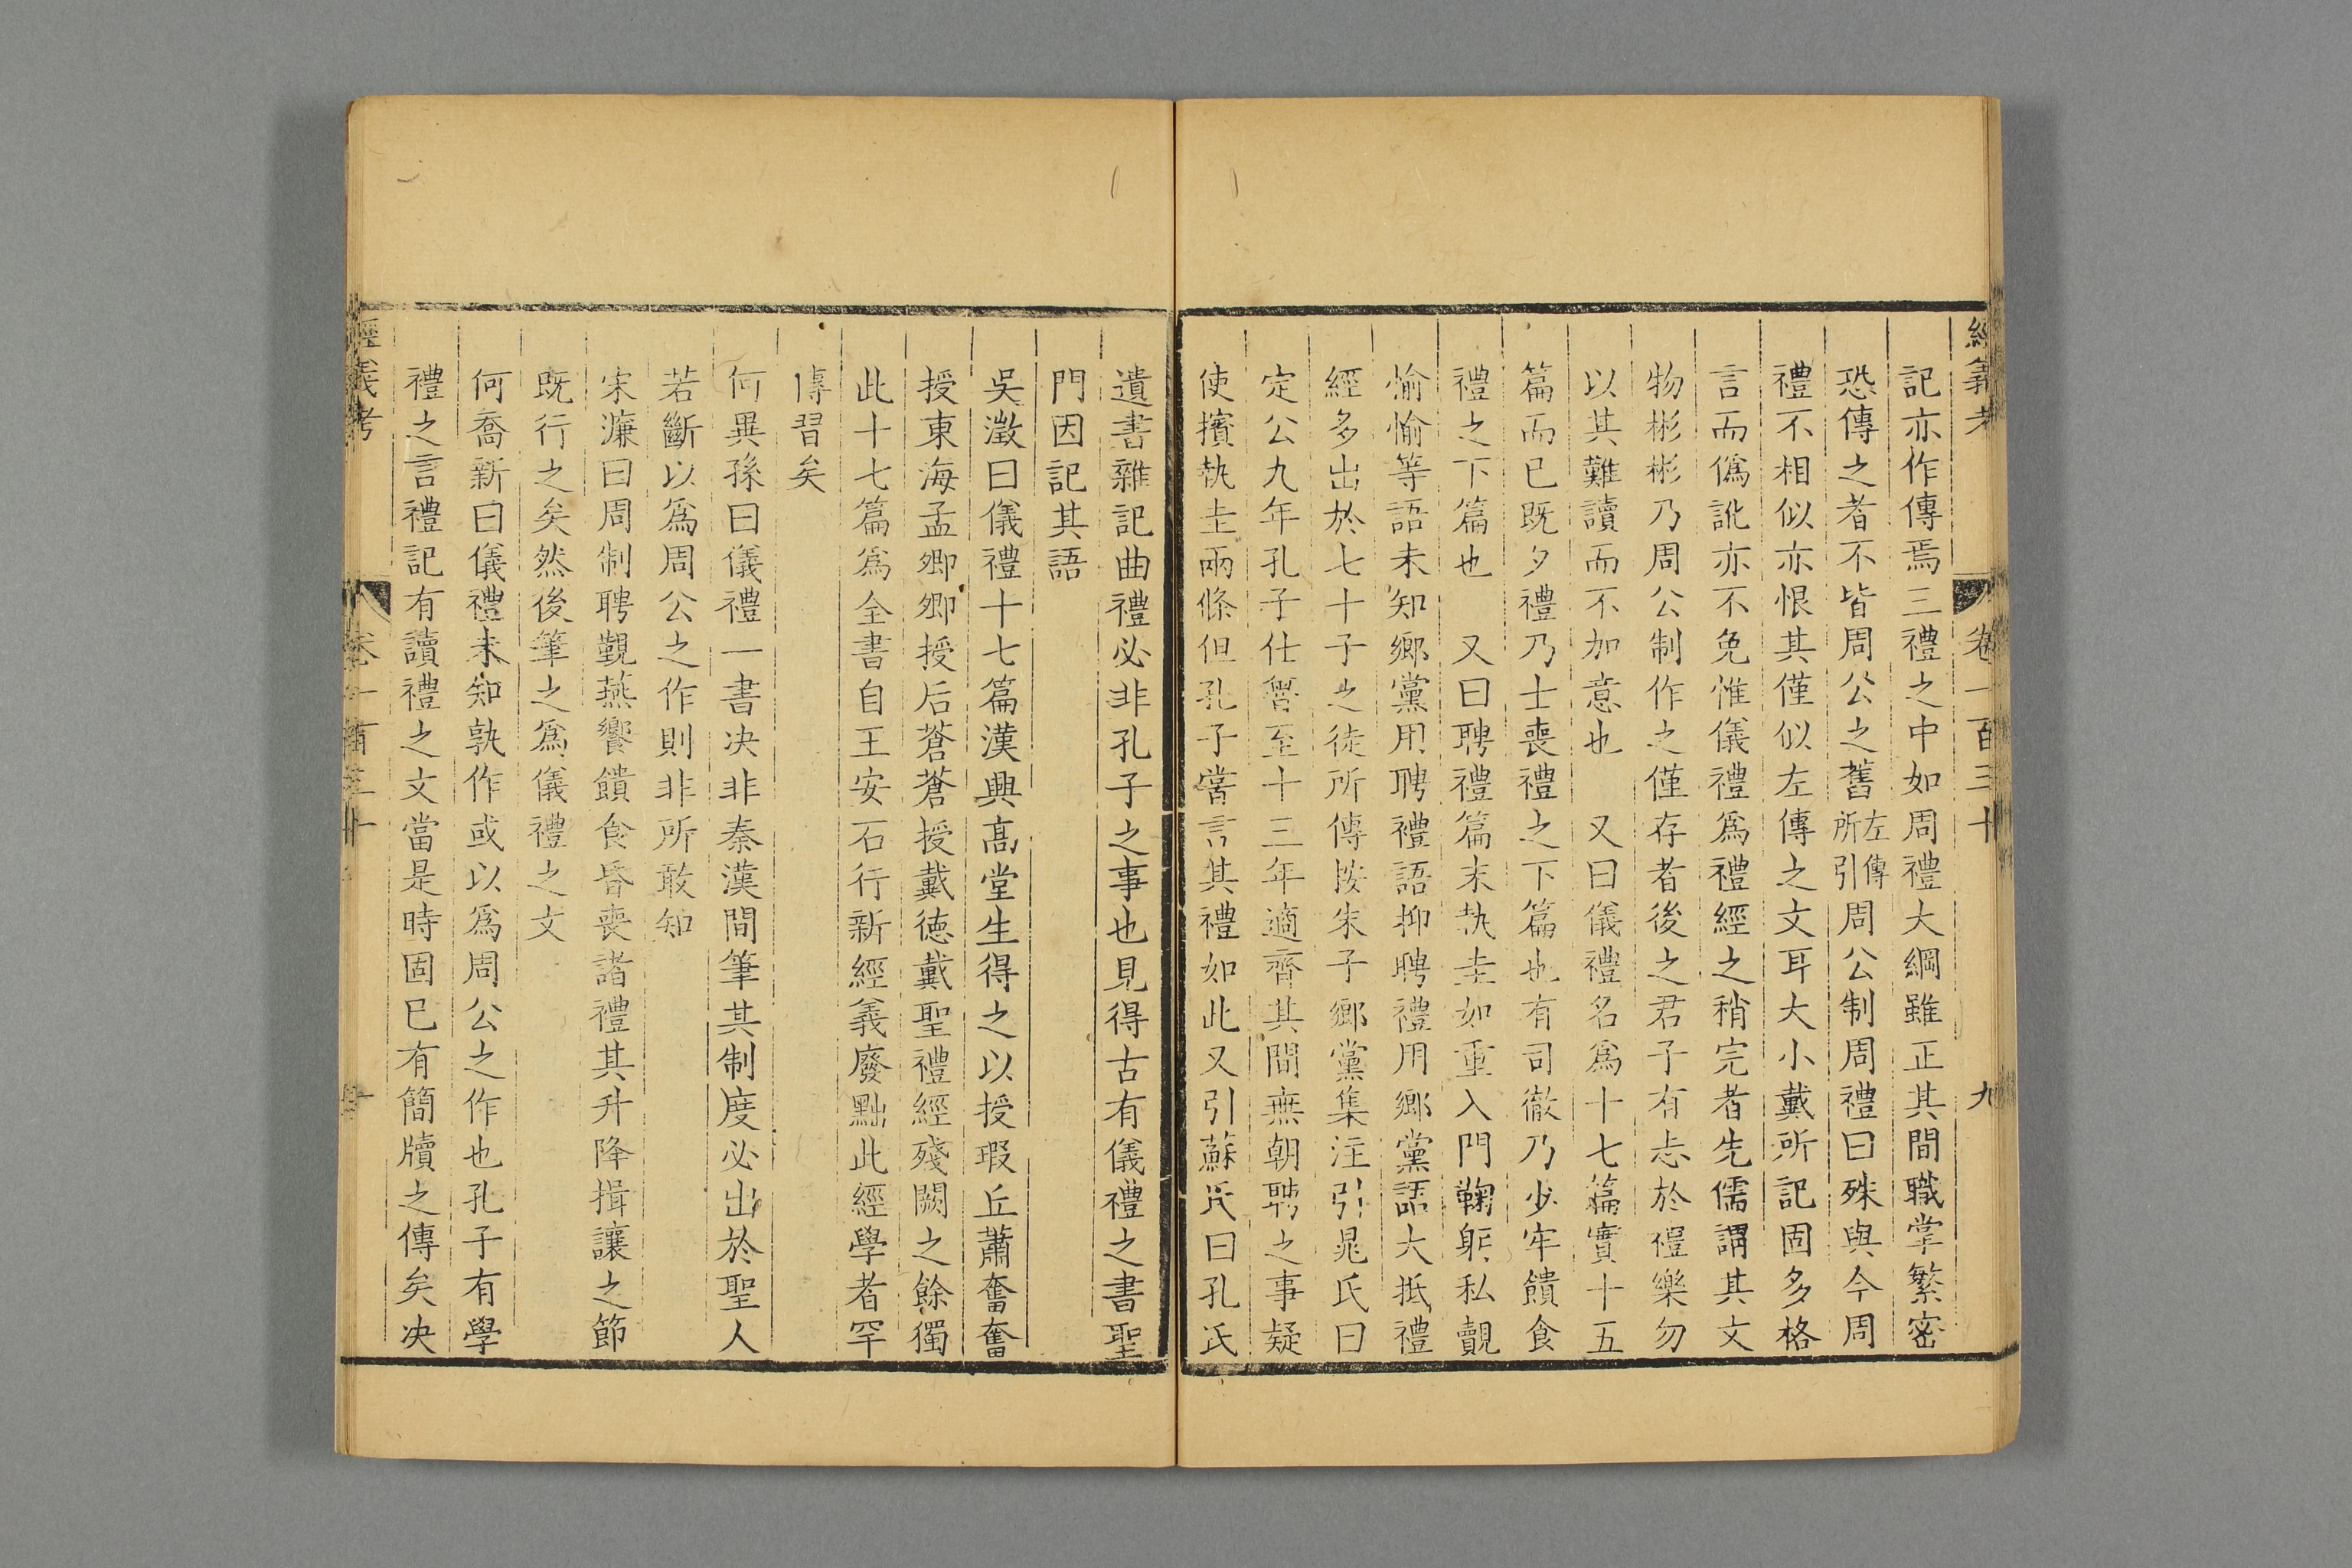 經義考　卷一百三十　九
記亦作傳焉三禮之中如周禮大綱雖正其間職掌繁密
恐傳之者不皆周公之舊左傳所引周公制周禮曰殊與今周
禮不相似亦恨其僅似左傳之文耳大小戴所記固多格
言而僞訛亦不免惟儀禮爲禮經之稍完者先儒謂其文
物彬彬乃周公制作之僅存者後之君子有志於禮樂勿
以其難讀而不加意也　又曰儀禮名爲十七篇實十五
篇而已既夕禮乃士喪禮之下篇也有司徹乃少牢饋食
禮之下篇也　又曰聘禮篇末執圭如重入門鞠躬私覿
愉愉等語未知鄉黨用聘禮語抑聘禮用鄉黨語大抵禮
經多出於七十子之徒所傳按朱子鄉黨集注引晁氏曰
定公九年孔子仕魯至十三年適齊其間無朝聘之事疑
使擯執圭兩條但孔子嘗言其禮如此又引蘇氏曰孔氏
遺書雜記曲禮必非孔子之事也見得古有儀禮之書聖
門因記其語
吳澂曰儀禮十七篇漢興髙堂生得之以授瑕丘蕭奮奮
授東海孟卿卿授后蒼蒼授戴徳戴聖禮經殘闕之餘獨
此十七篇爲全書自王安石行新經義廢黜此經學者罕
傳習矣
何異孫曰儀禮一書决非秦漢間筆其制度必出於聖人
若斷以爲周公之作則非所敢知
宋濂曰周制聘覲燕饗饋食昏喪諸禮其升降揖讓之節
既行之矣然後筆之爲儀禮之文
何喬新曰儀禮未知孰作或以爲周公之作也孔子有學
禮之言禮記有讀禮之文當是時固已有簡牘之傳矣决
經義考　卷一百三十